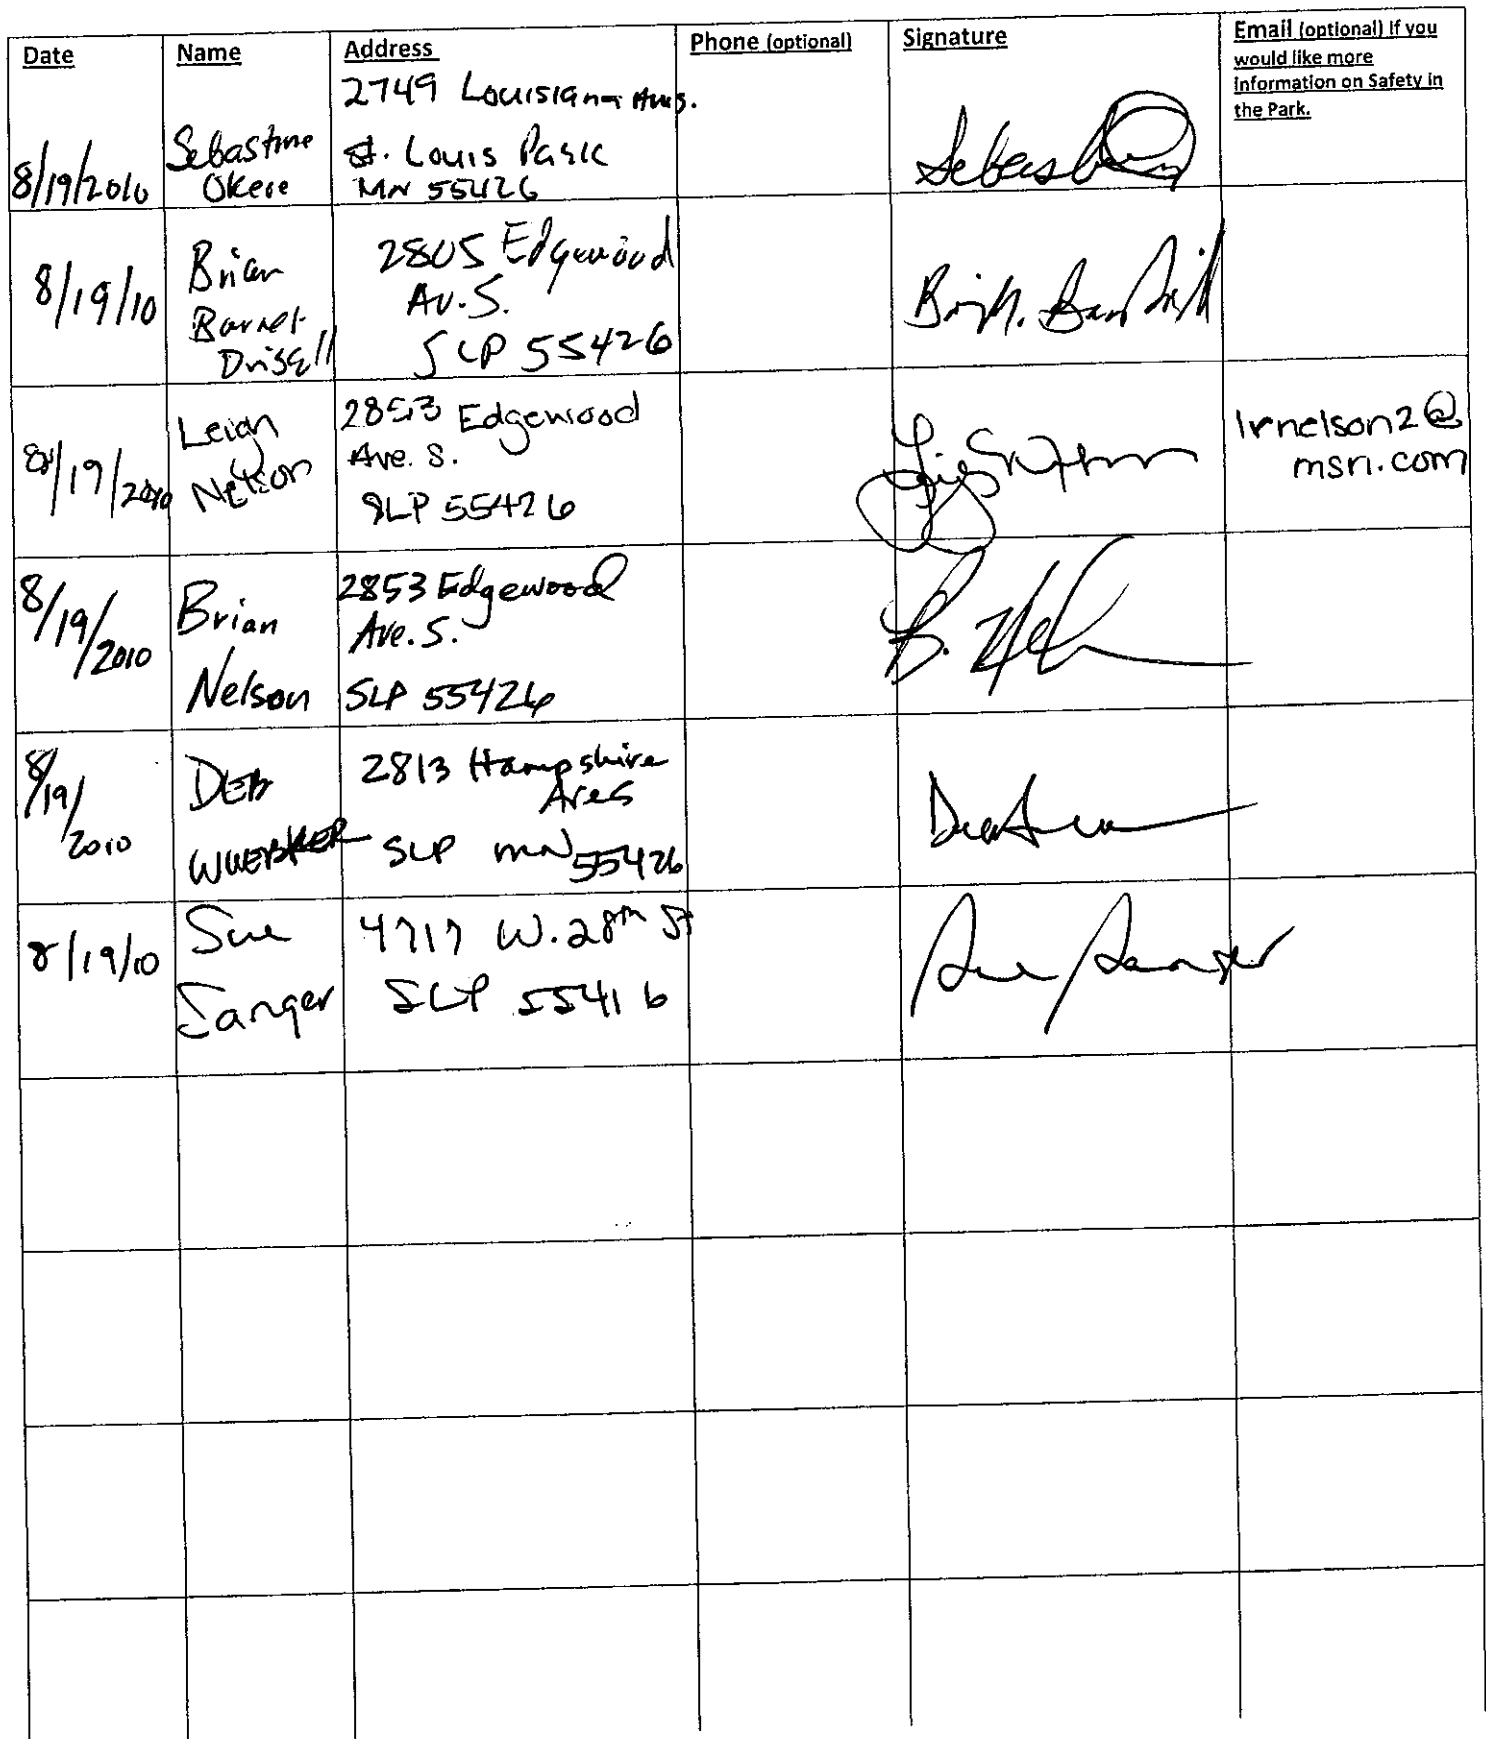 Date
Name
Address
Phone (optional)
Signature
Email (optional) if you
would like more
information on Safety in
the Park.
8/19/2010
Sebastine
Okere
2749 Louisiana Ave S.
St. Louis Park
MN 55426
8/19/10
Brian
Barnet
2805 Edgewood
Av. S.
SLP 55426
8/19/2010
Leigh
Nelson
2853 Edgewood
Ave. S.
SLP 55426
lrnelson2@
msn.com
8/19/2010
Brian
Nelson
2853 Edgewood
Ave. S.
SLP 55426
B. Nel
8/19/
2010
DEB
2813 Hampshire
SLP MN 55426
8/19/10
Sue
Sanger
4717 W. 28th St
SLP 55416
Sue Sanger